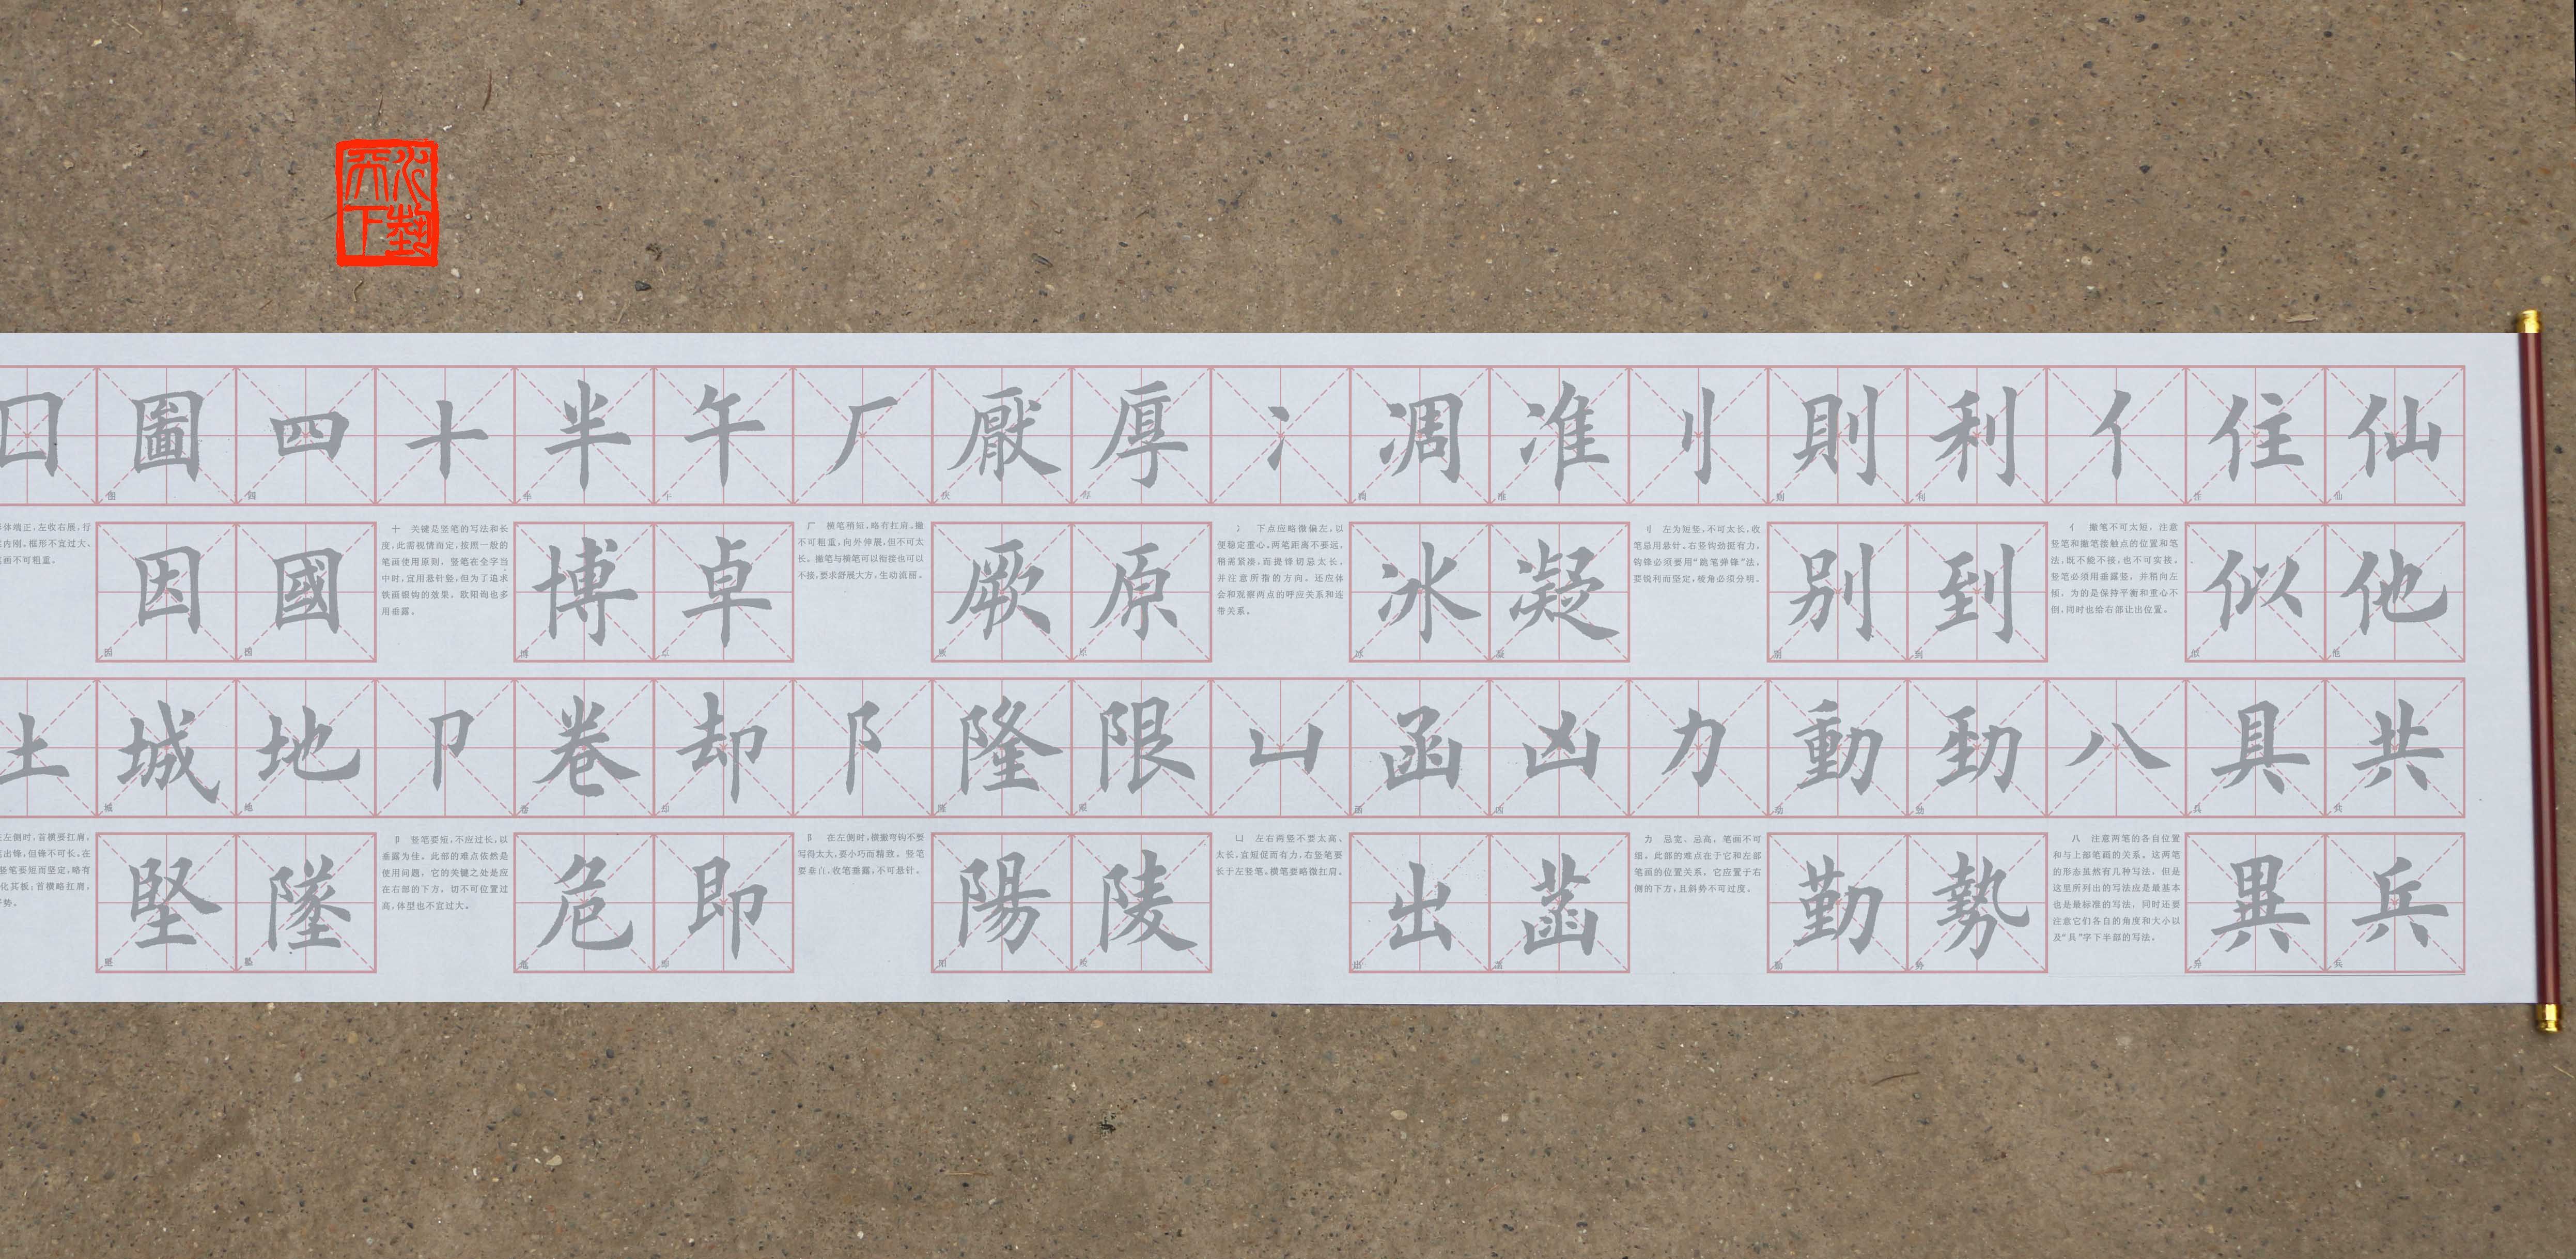 天下
囗 圖 四 十 半 午 厂 厭 厚 冫 凋 准 刂 則 利 亻 住 仙
体端正，左收右展，行
内刚。框形不宜过大、
画不可粗重。
因 國
十 关键是竖笔的写法和长
度，此需视情而定，按照一般的
笔画使用原则，竖笔在全字当
中时，宜用悬针竖，但为了追求
铁画银钩的效果，欧阳询也多
用垂露。
博 卓
厂 横笔稍短，略有扛肩，撇
不可粗重，向外伸展，但不可太
长。撇笔与横笔可以衔接也可以
不接，要求舒展大方，生动流丽。
厥 原
冫 下点应略微偏左，以
便稳定重心。两笔距离不要远，
稍需紧凑，而提锋切忌太长，
并注意所指的方向。还应体
会和观察两点的呼应关系和连
带关系。
冰 凝
刂 左为短竖，不可太长，收
笔忌用悬针。右竖钩劲挺有力，
钩锋必须要用“跪笔弹锋”法，
要锐利而坚定，棱角必须分明。
别 到
亻 撇笔不可太短，注意
竖笔和撇笔接触点的位置和笔
法，既不能不接，也不可实接。
竖笔必须用垂露竖，并稍向左
倾，为的是保持平衡和重心不
倒，同时也给右部让出位置。
似 他
土 城 地 卩 卷 却 阝 隆 限 凵 函 凶 力 動 勁 八 具 共
左侧时，首横要扛肩，
出锋，但锋不可长。在
竖笔要短而坚定，略有
化其板；首横略扛肩，
势。
堅 墜
卩 竖笔要短，不应过长，以
垂露为佳。此部的难点依然是
使用问题，它的关键之处是应
在右部的下方，切不可位置过
高，体型也不宜过大。
危 即
阝 在左侧时，横撇弯钩不要
写得太大，要小巧而精致。竖笔
要垂直，收笔垂露，不可悬针。
陽 陵
凵 左右两竖不要太高、
太长，宜短促而有力，右竖笔要
长于左竖笔。横笔要略微扛肩。
出 菡
力 忌宽、忌高，笔画不可
细。此部的难点在于它和左部
笔画的位置关系，它应置于右
侧的下方，且斜势不可过度。
勤 勢
八 注意两笔的各自位置
和与上部笔画的关系。这两笔
的形态虽然有几种写法，但是
这里所列出的写法应是最基本
也是最标准的写法，同时还要
注意它们各自的角度和大小以
及“具”字下半部的写法。
異 兵